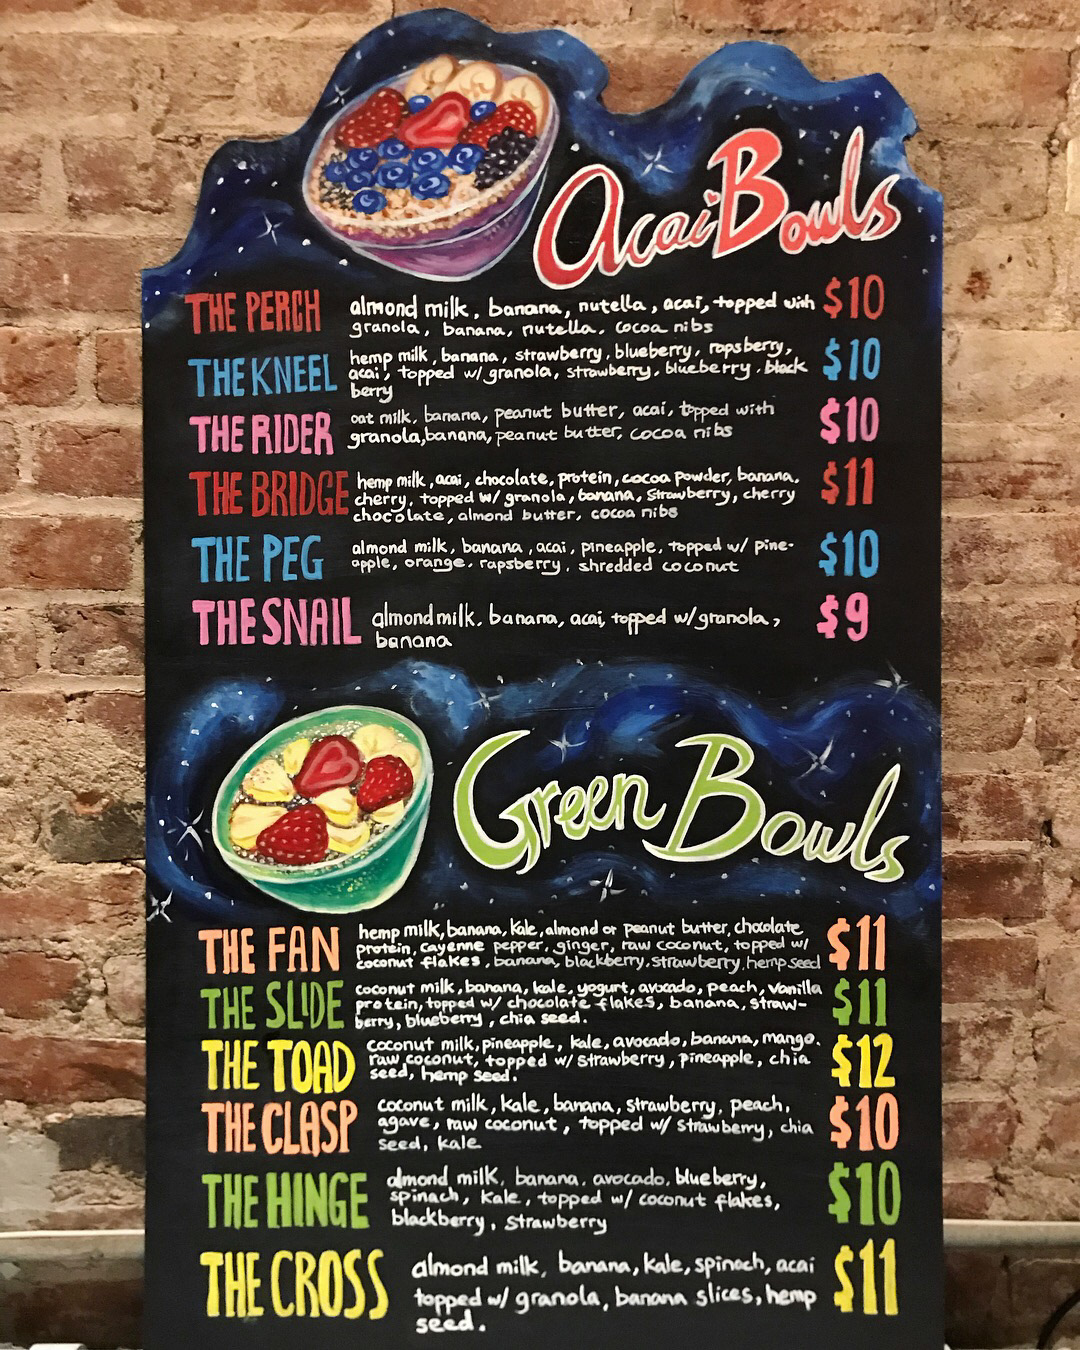 Acai Bowls
THE PERCH almond milk, banana, nutella, acai, topped with $10
granola, banana, nutella, cocoa nibs
THE KNEEL hemp milk, banana, strawberry, blueberry, rapsberry, $10
acai, topped w/ granola, strawberry, blueberry, black
berry
THE RIDER oat milk, banana, peanut butter, acai, topped with $10
granola, banana, peanut butter, cocoa nibs
THE BRIDGE hemp milk, acai, chocolate, protein, cocoa powder, banana, $11
cherry, topped w/ granola, banana, strawberry, cherry
chocolate, almond butter, cocoa nibs
THE PEG almond milk, banana, acai, pineapple, topped w/ pine- $10
apple, orange, rapsberry, shredded coconut
THE SNAIL almond milk, banana, acai, topped w/ granola, $9
banana
Green Bowls
THE FAN hemp milk, banana, kale, almond or peanut butter, chocolate $11
protein, cayenne pepper, ginger, raw coconut, topped w/
coconut flakes, banana, blackberry, strawberry, hemp seed
THE SLIDE coconut milk, banana, kale, yogurt, avocado, peach, vanilla $11
protein, topped w/ chocolate flakes, banana, straw-
berry, blueberry, chia seed.
THE TOAD coconut milk, pineapple, kale, avocado, banana, mango, $12
raw coconut, topped w/ strawberry, pineapple, chia
seed, hemp seed.
THE CLASP coconut milk, kale, banana, strawberry, peach, $10
agave, raw coconut, topped w/ strawberry, chia
seed, kale
THE HINGE almond milk, banana, avocado, blueberry, $10
spinach, kale, topped w/ coconut flakes,
blackberry, strawberry
THE CROSS almond milk, banana, kale, spinach, acai $11
topped w/ granola, banana slices, hemp
seed.